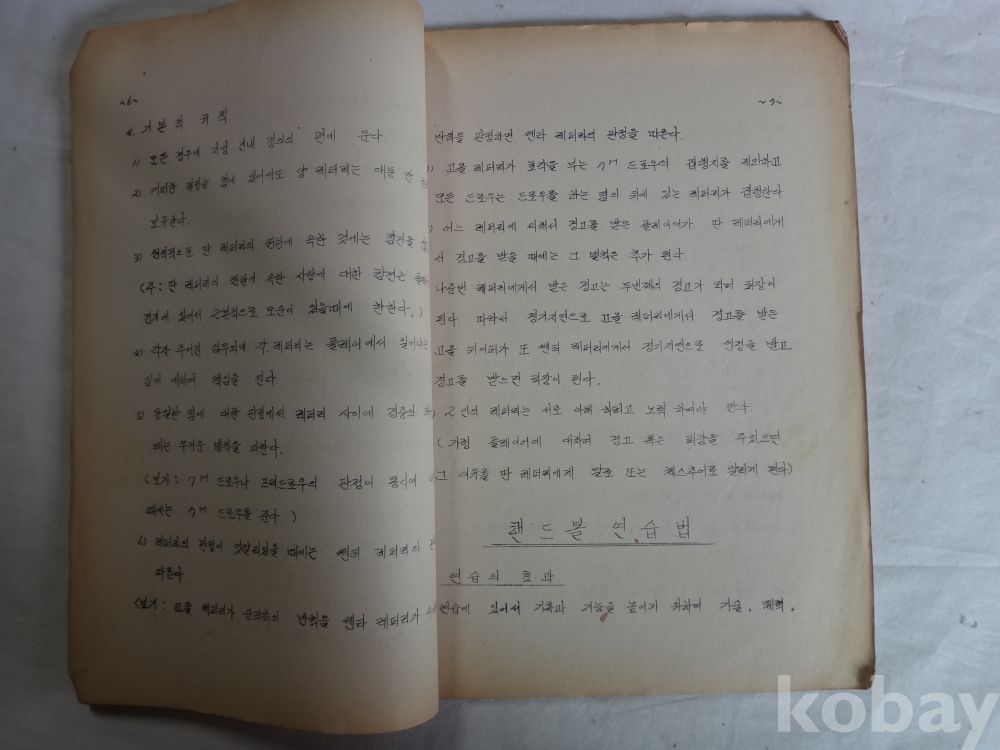 ~6~
2. 기본적 규칙
1) 모든 경우에 자성 선내 경의의 편에 준다
2) 어떠한 결정을 함에 있어서도 양 레퍼리는 대등한
보유한다.
3) 원칙적으로 딴 레퍼리의 권한에 속한 것에는 참견을
(주: 딴 레퍼리의 권한에 속한 사항에 대한 참견은
관계에 있어서 근본적으로 모순이 있을때에 한한다.)
4) 각자 주어진 임무외에 각 레퍼리는 플레이에서 일어나는
일에 대하여 책임을 진다
5) 동일한 팀에 대한 판정에서 레퍼리 사이에 경중의
때는 무거운 벌칙을 따른다.
(보기: 7M 드로우나 프리드로우의 판정이 동시에
때에는 7M 드로우를 준다.)
6) 레퍼리의 판정이 엇갈리었을 때에는 쎈터 레퍼리의
따른다
(보기: 꼬을 레퍼리가 공격측의 반칙을 쎈타 레퍼리가
~7~
반칙을 판정하면 쎈타 레퍼리의 판정을 따른다.
꼬을 레퍼리가 호각을 부는 7M 드로우의 집행지를 제외하고
모든 드로우는 드로우를 하는 편의 뒤에 있는 레퍼리가 집행한다
어느 레퍼리에 의해서 경고를 받은 플레이어가 딴 레퍼리에게
서 경고를 받을 때에는 그 벌칙은 추가 된다.
나중번 레퍼리에게서 받은 경고는 두번째의 경고가 되며 퇴장이
된다. 따라서 경기지연으로 꼬을 레퍼리에게서 경고를 받은
꼬을 키이퍼가 또 쎈터 레퍼리에게서 경기지연으로 인정을 받고
경고를 받으면 퇴장이 된다.
2인의 레퍼리는 서로 이해 하려고 노력 하여야 한다.
(가령 플레이어에 대하여 경고 혹은 퇴장을 주었으면
그 이유를 딴 레퍼리에게 말로 또는 제스추어로 알리게 된다)
핸드볼 연습법
연습의 효과
연습에 있어서 기록과 기능을 높이기 위하여 기술, 체력,
kobay